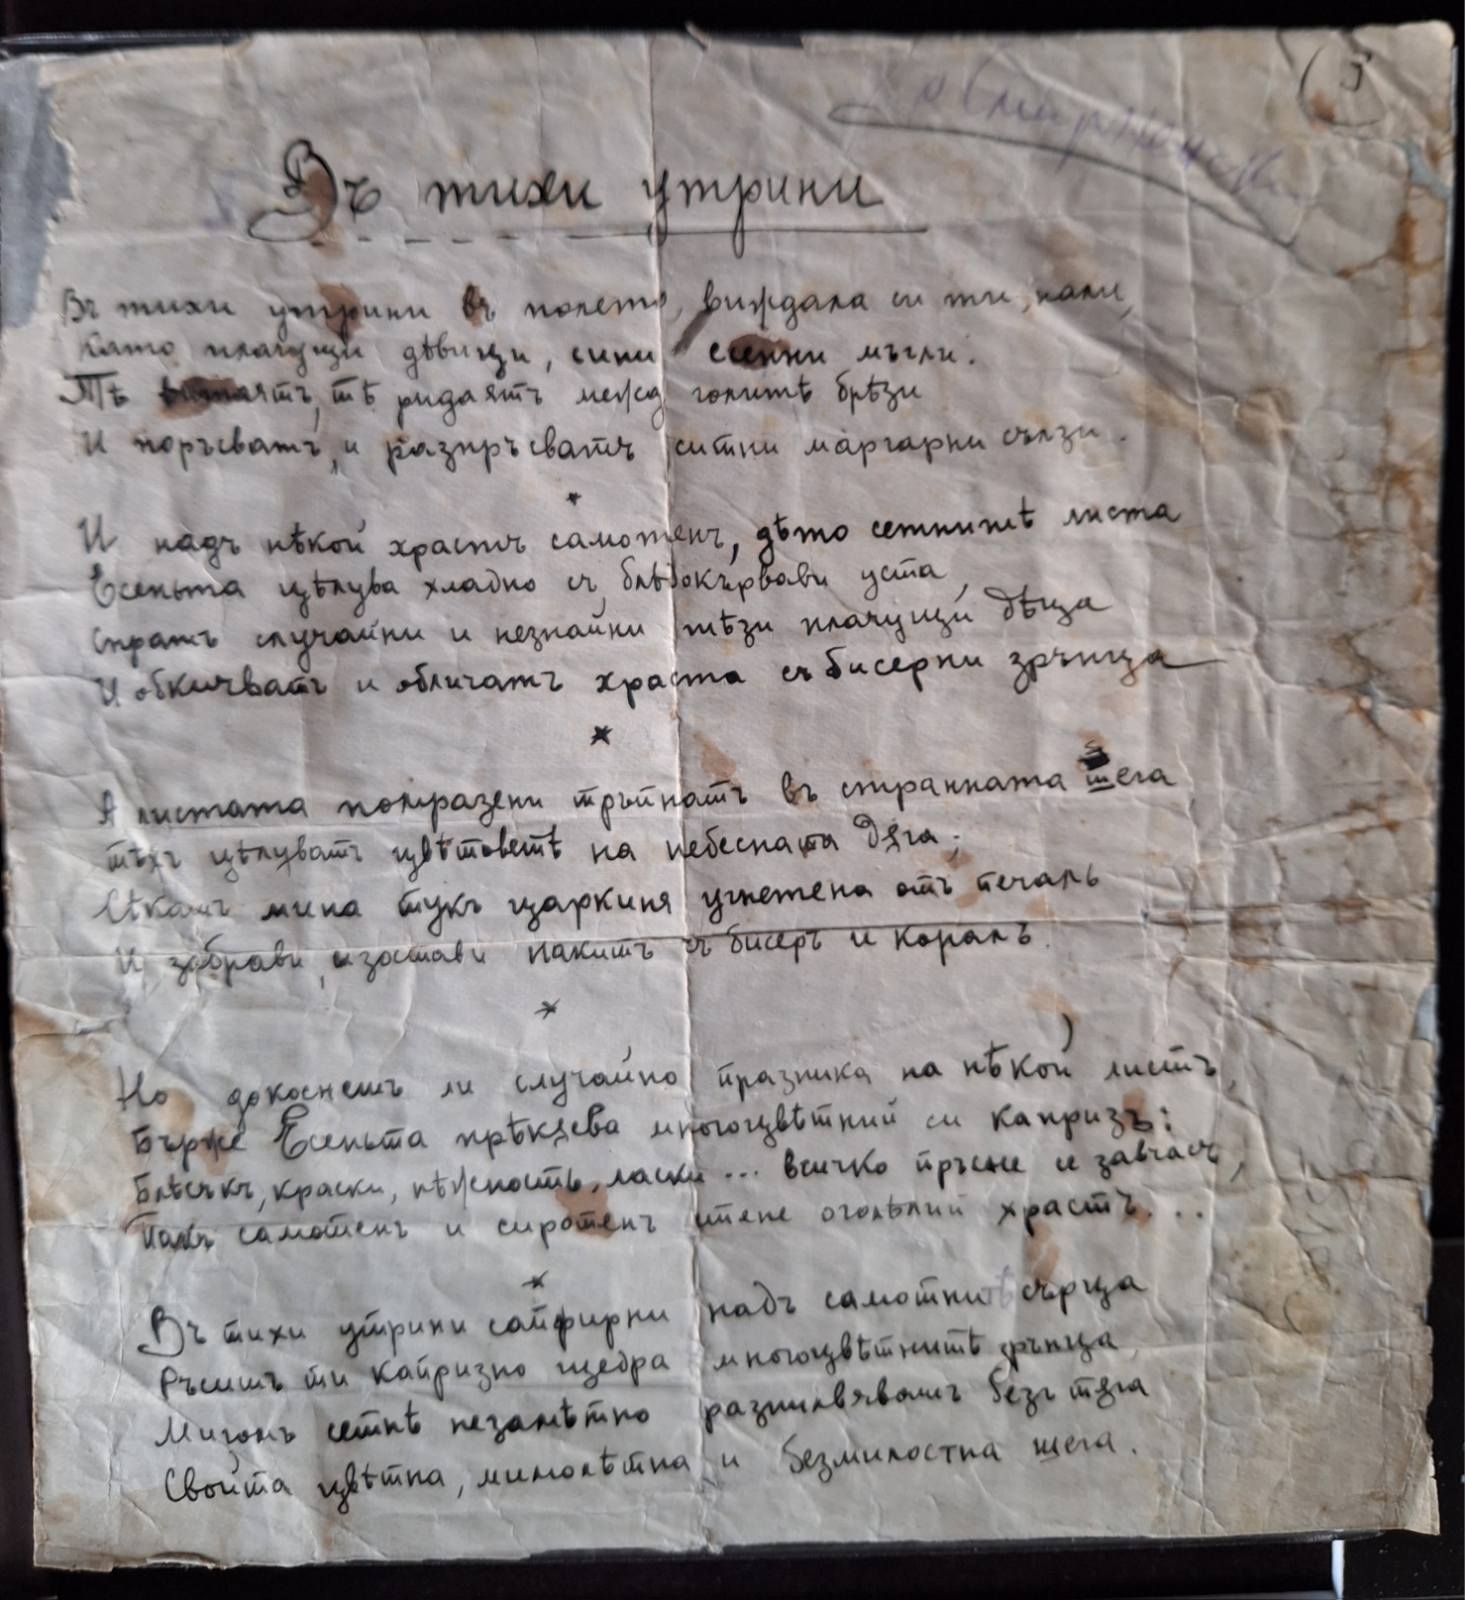 5
Хр Смирненски
Въ тихи утрини
Въ тихи утрини въ полето, виждала си ти, нали,
Като плачущи дѣвици, сини есенни мъгли.
Тѣ витаятъ, тѣ ридаятъ межд голитѣ брѣзи
И поръсватъ, и разпръсватъ ситни маргарни сълзи.
*
И надъ нѣкой храстъ самотенъ, дѣто сетнитѣ листа
Есеньта цѣлува хладно съ блѣдокървави уста,
Спратъ случайни и незнайни тѣзи плачущи дѣца
И обкичватъ и обличатъ храста съ бисерни зрънца
*
А листата поптразени тръпнатъ въ странната шега
тѣхъ цѣлуватъ цвѣтоветѣ на небесната дѫга;
Сѣкашъ мина тукъ царкиня угнетена отъ печаль
И забрави, изостави накитъ съ бисеръ и коралъ.
*
Но докоснешъ ли случайно празника на нѣкой листъ,
Бърже Есеньта прѣкѫсва многоцвѣтний си капризъ:
Блѣсъкъ, краски, нѣжность, ласки... всичко пръсне се завчасъ,
Пакъ самотенъ и сиротенъ стене оголѣлий храстъ...
*
Въ тихи утрини сапфирни надъ самотнитѣ сърца
Ръсишъ ти капризно щедра многоцвѣтнитѣ зрънца,
Мигомъ сетнѣ незамѣтно разпилявашъ безъ тѫга
Свойта цвѣтна, мимолѣтна и безмилостна шега.